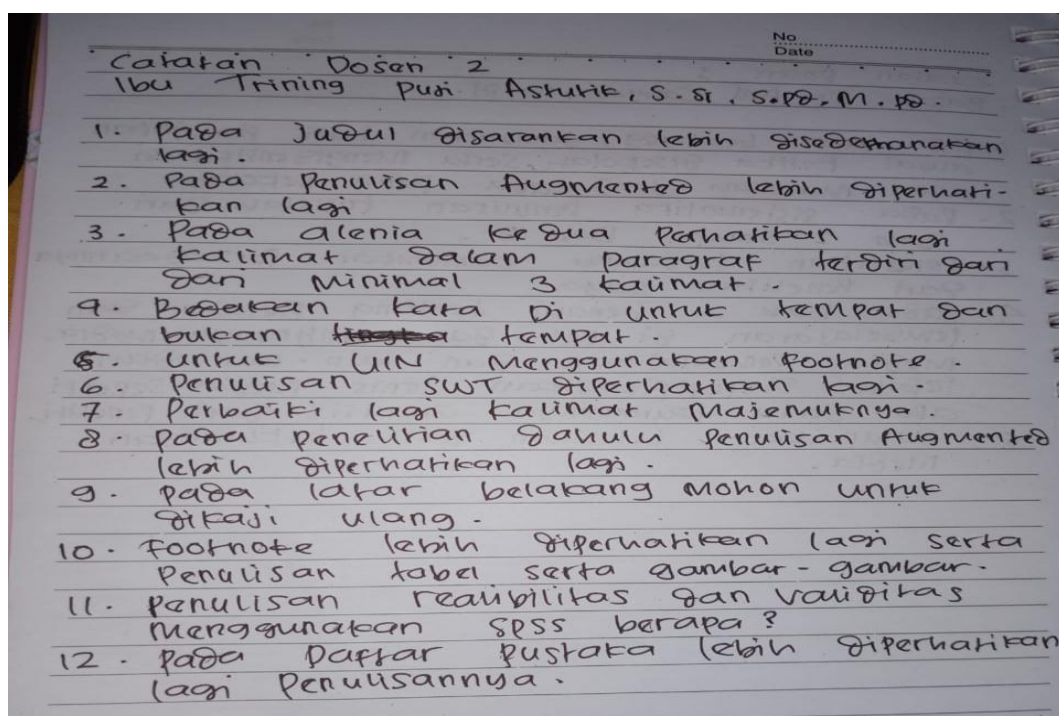 No
Date
Catatan Dosen 2
Ibu Trining Puji Astutik, S.Si, S.Pd, M.Pd.
1. Pada Judul disarankan lebih disederhanakan
lagi.
2. Pada Penulisan Augmented lebih diperhati-
kan lagi
3. Pada alenia kedua Perhatikan lagi
kalimat dalam paragraf terdiri dari
dari Minimal 3 kalimat.
4. Bedakan kata Di untuk tempat dan
bukan tempat.
5. Untuk UIN Menggunakan Footnote.
6. Penulisan SWT diperhatikan lagi.
7 Perbaiki lagi kalimat Majemuknya.
8. pada penelitian dahulu Penulisan Augmented
lebih diperhatikan lagi.
9. pada latar belakang Mohon untuk
dikaji ulang.
10. Footnote lebih diperhatikan lagi serta
Penulisan tabel serta gambar-gambar.
11. Penulisan realibilitas dan validitas
Menggunakan SPSS berapa?
12. Pada Daftar Pustaka lebih diperhatikan
lagi Penulisannya.